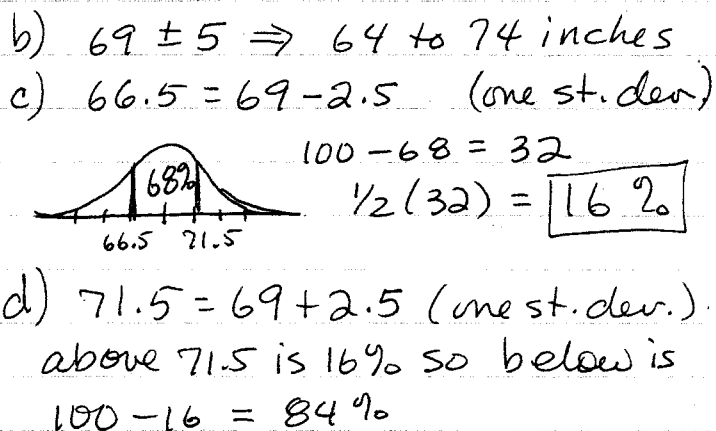 b) 69 ± 5 ⇒ 64 to 74 inches
c) 66.5 = 69 - 2.5 (one st. dev)
100 - 68 = 32
68%
1/2 (32) = 16 %
66.5 71.5
d) 71.5 = 69 + 2.5 (one st. dev.).
above 71.5 is 16% so below is
100 - 16 = 84 %